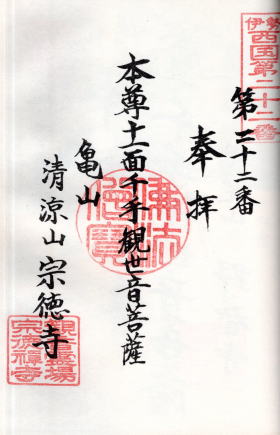 伊勢
西国第二十二番
第二十二番
奉拝
本尊十一面千手観世音菩薩
佛法僧寶
亀山
清涼山宗徳寺
観音霊場
宗徳禅寺